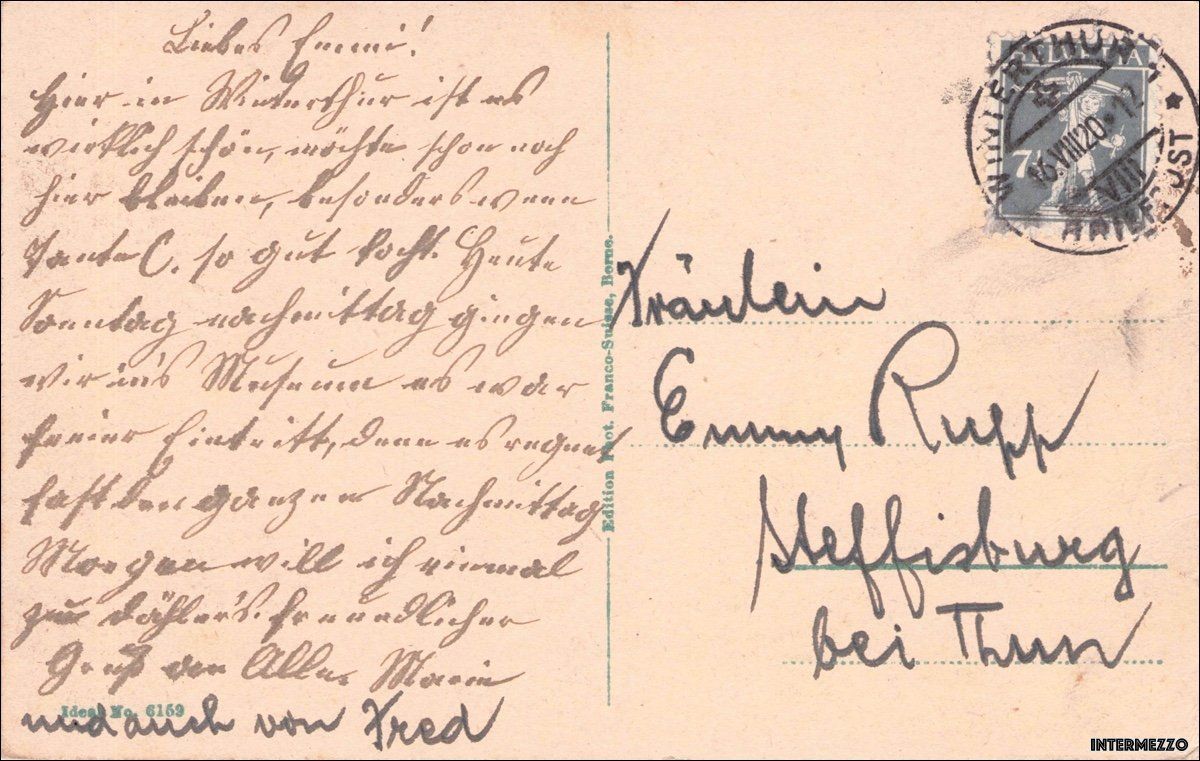 Liebes Emmi!
Hier in Winterthur ist es
wirklich schön, möchte schon noch
hier bleiben, besonders wenn
Tante C. so gut kocht. Heute
Sonntag nachmittag gingen
wir in's Museum es war
freier Eintritt, denn es regnet
fast den ganzen Nachmittag
Morgen will ich einmal
zu Dähler's freundlicher
Gruß an Alle. Marie
und auch von Fred
Ideal No. 6159
Edition Phot. Franco-Suisse, Berne.
HELVETIA
7½
WINTERTHUR 1
16.VIII.20 * 12
VIII
BRIEFPOST
Fräulein
Emmy Rupp
Steffisburg
bei Thun
INTERMEZZO